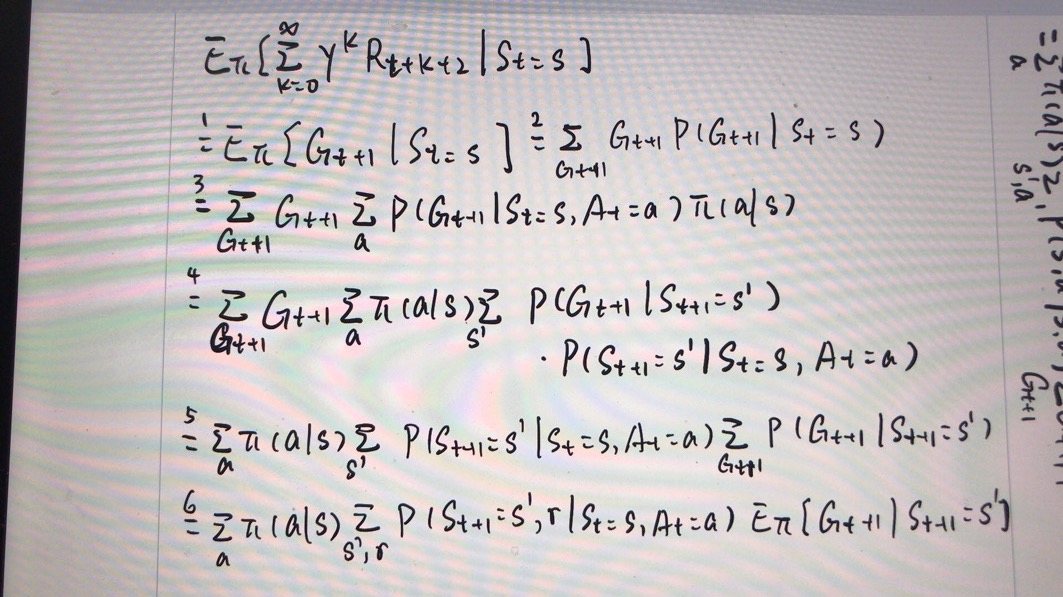 Eπ[∑_{k=0}^{∞} γ^k R_{t+k+2} | S_t=s]
1= Eπ[G_{t+1} | S_t=s] 2= ∑_{G_{t+1}} G_{t+1} P(G_{t+1} | S_t=s)
3= ∑_{G_{t+1}} G_{t+1} ∑_a P(G_{t+1} | S_t=s, A_t=a) π(a|s)
4= ∑_{G_{t+1}} G_{t+1} ∑_a π(a|s) ∑_{s'} P(G_{t+1} | S_{t+1}=s')
· P(S_{t+1}=s' | S_t=s, A_t=a)
5= ∑_a π(a|s) ∑_{s'} P(S_{t+1}=s' | S_t=s, A_t=a) ∑_{G_{t+1}} P(G_{t+1} | S_{t+1}=s')
6= ∑_a π(a|s) ∑_{s',r} P(S_{t+1}=s', r | S_t=s, A_t=a) Eπ[G_{t+1} | S_{t+1}=s']
= ∑_a π(a|s) ∑_{s',a}
G_{t+1}